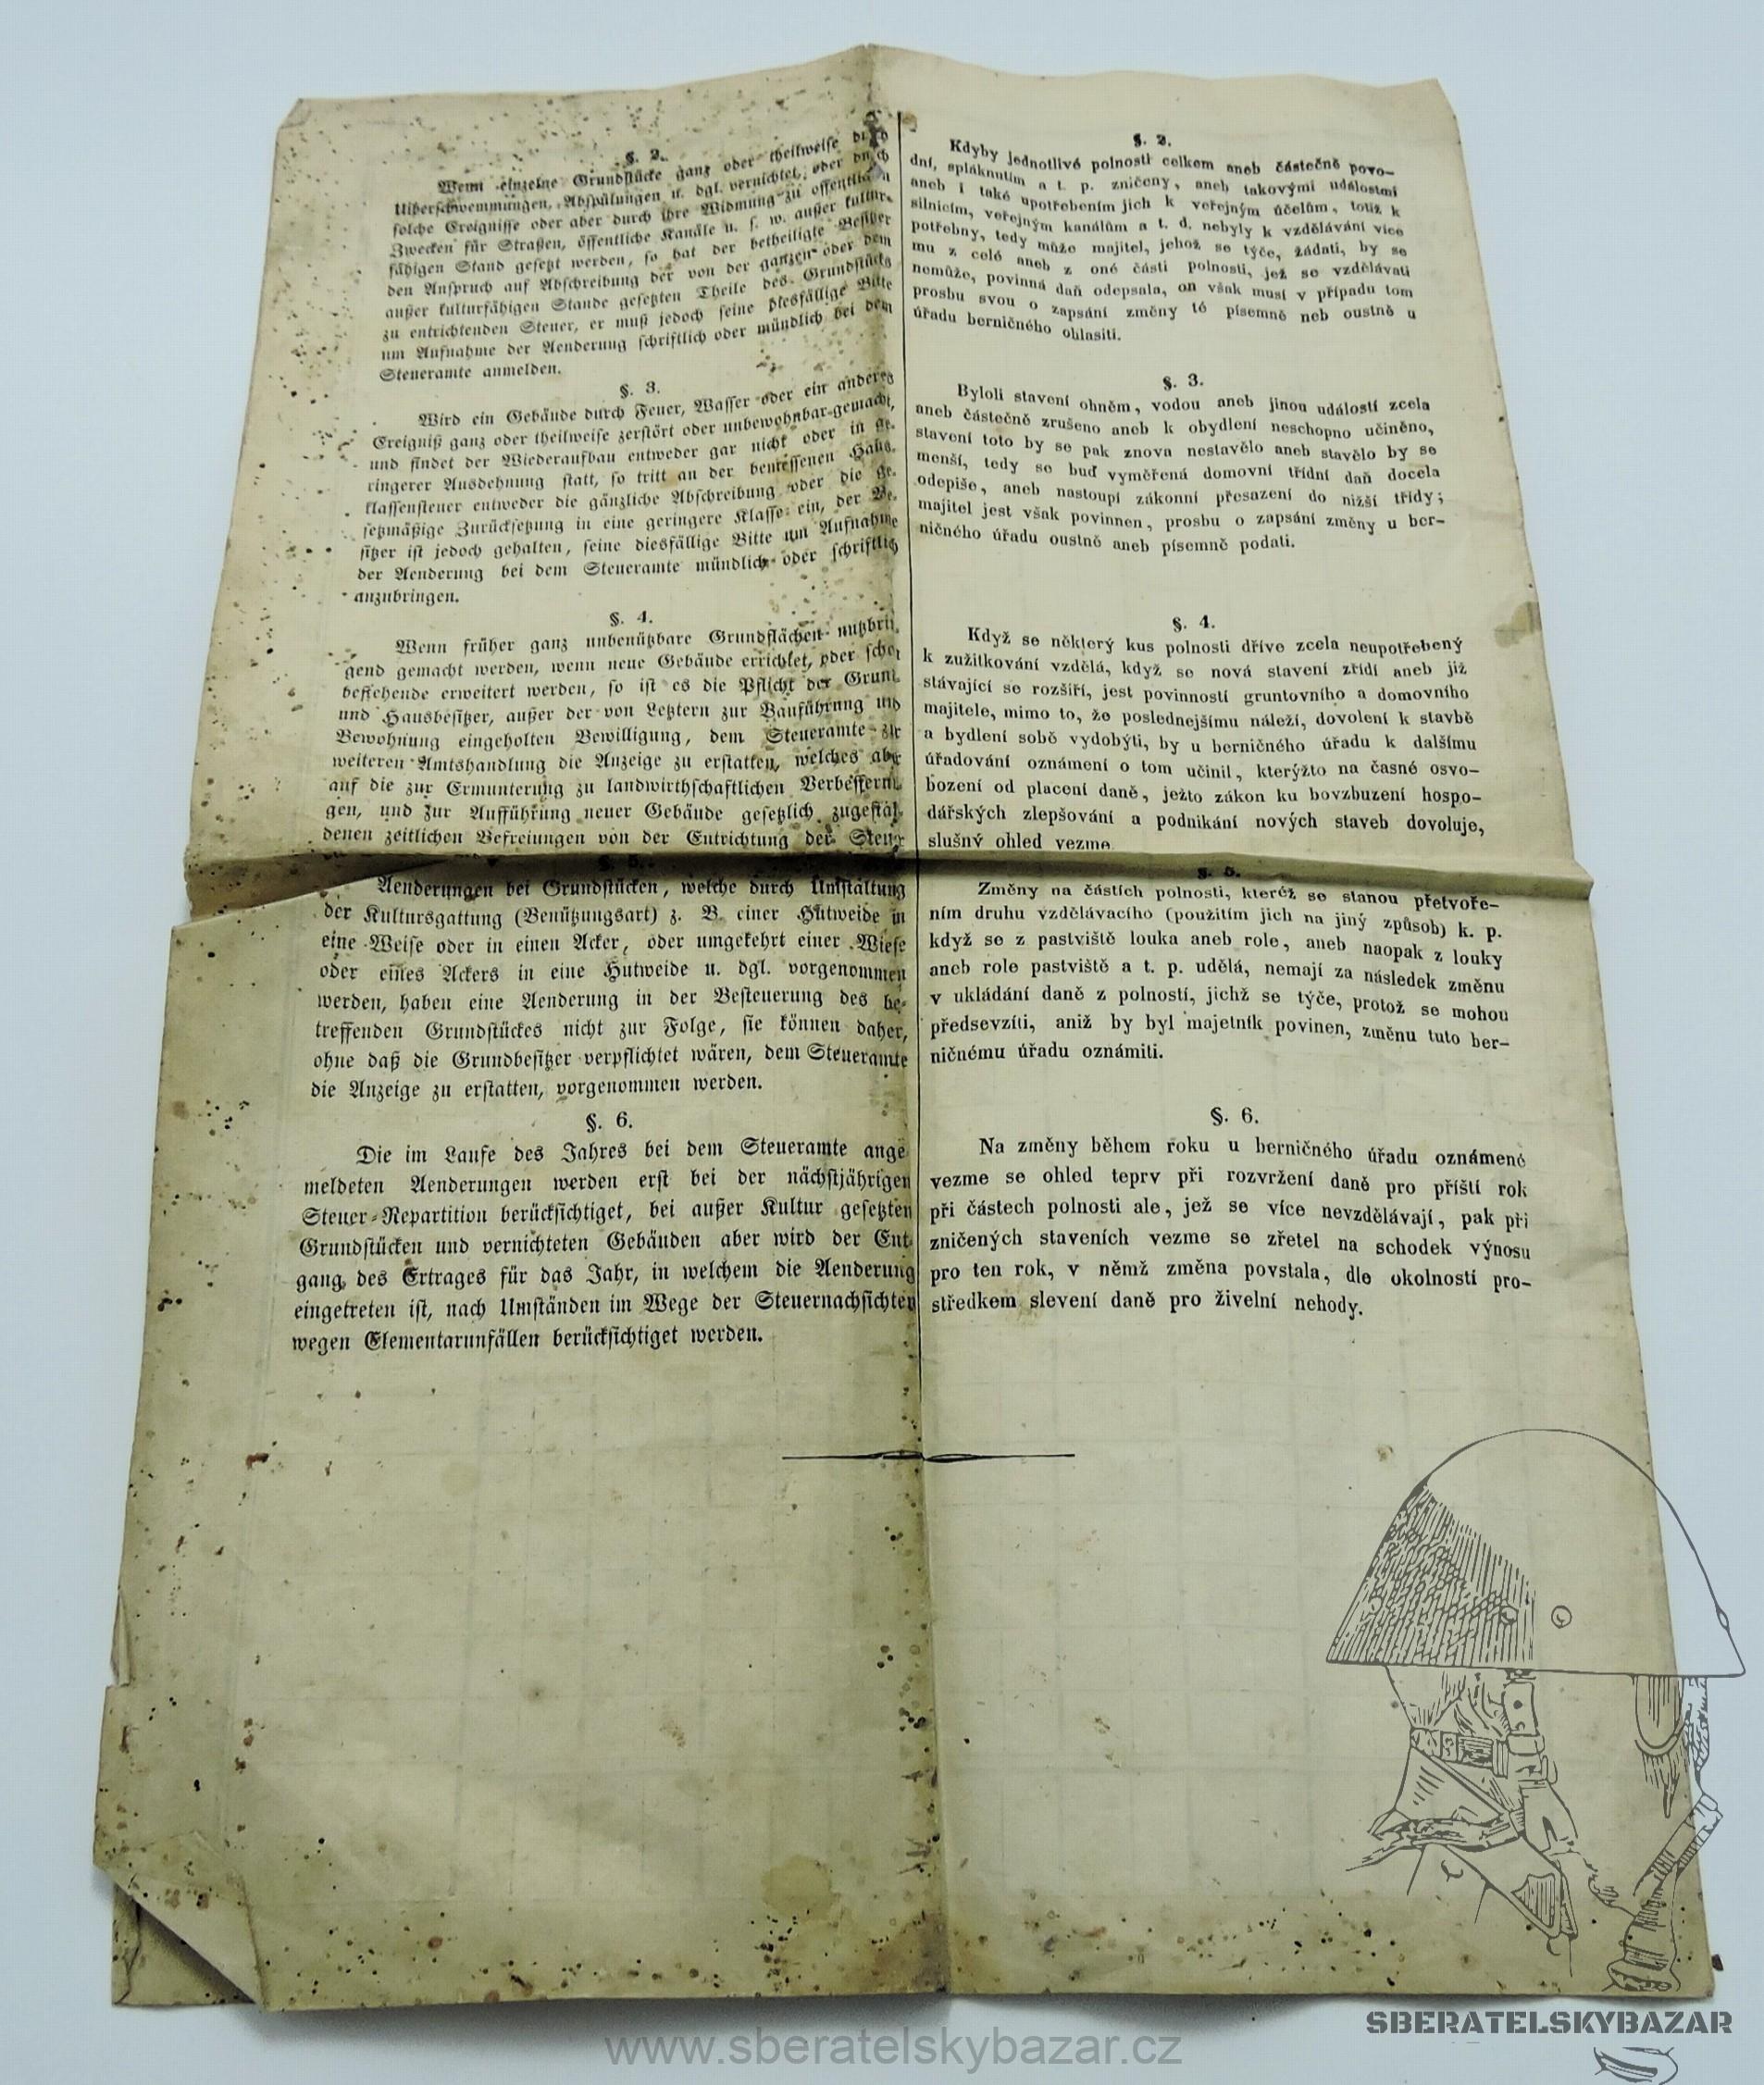 §. 2.
Wenn einzelne Grundstücke ganz oder theilweise durch
Uiberschwemmungen, Abspülungen u. dgl. vernichtet, oder durch
solche Ereignisse oder aber durch ihre Widmung zu öffentlichen
Zwecken für Straßen, öffentliche Kanäle u. s. w. außer kultur-
fähigen Stand gesetzt werden, so hat der betheiligte Besitzer
den Anspruch auf Abschreibung der von der ganzen oder dem
außer kulturfähigen Stande gesetzten Theile des Grundstücks
zu entrichtenden Steuer, er muß jedoch seine diesfällige Bitte
um Aufnahme der Aenderung schriftlich oder mündlich bei dem
Steueramte anmelden.
§. 3.
Wird ein Gebäude durch Feuer, Wasser oder ein anderes
Ereigniß ganz oder theilweise zerstört oder unbewohnbar gemacht,
und findet der Wiederaufbau entweder gar nicht oder in ge-
ringerer Ausdehnung statt, so tritt an der bemessenen Haus-
klassensteuer entweder die gänzliche Abschreibung oder die ge-
setzmäßige Zurücksetzung in eine geringere Klasse ein, der Be-
sitzer ist jedoch gehalten, seine diesfällige Bitte um Aufnahme
der Aenderung bei dem Steueramte mündlich oder schriftlich
anzubringen.
§. 4.
Wenn früher ganz unbenützbare Grundflächen nutzbrin-
gend gemacht werden, wenn neue Gebäude errichtet, oder schon
bestehende erweitert werden, so ist es die Pflicht der Grund-
und Hausbesitzer, außer der von Letztern zur Bauführung und
Bewohnung eingeholten Bewilligung, dem Steueramte zur
weiteren Amtshandlung die Anzeige zu erstatten, welches aber
auf die zur Ermunterung zu landwirthschaftlichen Verbesserun-
gen, und zur Aufführung neuer Gebäude gesetzlich zugestan-
denen zeitlichen Befreiungen von der Entrichtung der Steuer
§. 5.
Aenderungen bei Grundstücken, welche durch Umstaltung
der Kultursgattung (Benützungsart) z. B. einer Hutweide in
eine Weise oder in einen Acker, oder umgekehrt einer Wiese
oder eines Ackers in eine Hutweide u. dgl. vorgenommen
werden, haben eine Aenderung in der Besteuerung des be-
treffenden Grundstückes nicht zur Folge, sie können daher,
ohne daß die Grundbesitzer verpflichtet wären, dem Steueramte
die Anzeige zu erstatten, vorgenommen werden.
§. 6.
Die im Laufe des Jahres bei dem Steueramte ange
meldeten Aenderungen werden erst bei der nächstjährigen
Steuer-Repartition berücksichtiget, bei außer Kultur gesetzten
Grundstücken und vernichteten Gebäuden aber wird der Ent-
gang des Ertrages für das Jahr, in welchem die Aenderung
eingetreten ist, nach Umständen im Wege der Steuernachsichten
wegen Elementarunfällen berücksichtiget werden.
§. 2.
Kdyby jednotlivé polnosti celkem aneb částečně povo-
dní, spláknutím a t. p. zničeny, aneb takovými událostmi
aneb i také upotřebením jich k veřejným účelům, totiž k
silnicím, veřejným kanálům a t. d. nebyly k vzdělávání více
potřebny, tedy může majitel, jehož se týče, žádati, by se
mu z celé aneb z oné části polnosti, jež se vzdělávati
nemůže, povinná daň odepsala, on však musí v případu tom
prosbu svou o zapsání změny té písemně neb oustně u
úřadu berničného ohlasiti.
§. 3.
Byloli stavení ohněm, vodou aneb jinou událostí zcela
aneb částečně zrušeno aneb k obydlení neschopno učiněno,
stavení toto by se pak znova nestavělo aneb stavělo by se
menší, tedy se buď vyměřená domovní třídní daň docela
odepíše, aneb nastoupí zákonní přesazení do nižší třídy;
majitel jest však povinnen, prosbu o zapsání změny u ber-
ničného úřadu oustně aneb písemně podati.
§. 4.
Když se některý kus polnosti dříve zcela neupotřebený
k zužitkování vzdělá, když se nová stavení zřídí aneb již
stávající se rozšíří, jest povinností gruntovního a domovního
majitele, mimo to, že poslednejšímu náleží, dovolení k stavbě
a bydlení sobě vydobýti, by u berničného úřadu k dalšímu
úřadování oznámení o tom učinil, kterýžto na časné osvo-
bození od placení daně, ježto zákon ku bovzbuzení hospo-
dářských zlepšování a podnikání nových staveb dovoluje,
slušný ohled vezme.
§. 5.
Změny na částích polnosti, kteréž se stanou přetvoře-
ním druhu vzdělávacího (použitím jich na jiný způsob) k. p.
když se z pastviště louka aneb role, aneb naopak z louky
aneb role pastviště a t. p. udělá, nemají za následek změnu
v ukládání daně z polností, jichž se týče, protož se mohou
předsevzíti, aniž by byl majetník povinen, změnu tuto ber-
ničnému úřadu oznámiti.
§. 6.
Na změny během roku u berničného úřadu oznámené
vezme se ohled teprv při rozvržení daně pro příští rok
při částech polnosti ale, jež se více nevzdělávají, pak při
zničených staveních vezme se zřetel na schodek výnosu
pro ten rok, v němž změna povstala, dle okolností pro-
středkem slevení daně pro živelní nehody.
SBERATELSKYBAZAR
www.sberatelskybazar.cz